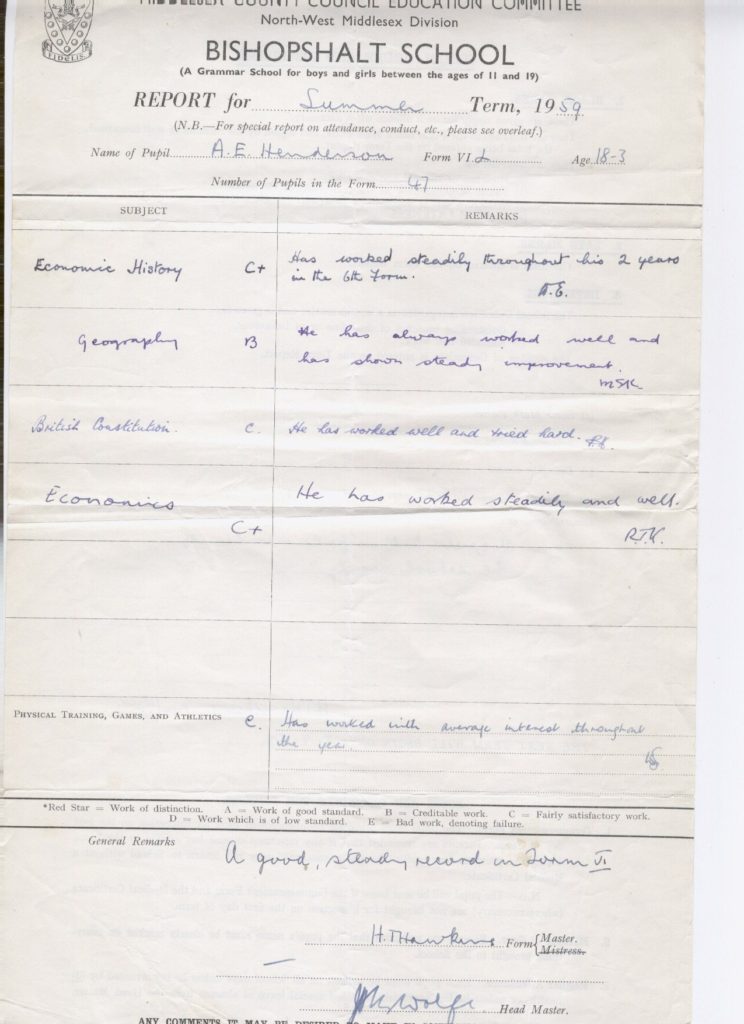 MIDDLESEX COUNTY COUNCIL EDUCATION COMMITTEE
North-West Middlesex Division
FIDELIS
BISHOPSHALT SCHOOL
(A Grammar School for boys and girls between the ages of 11 and 19)
REPORT for Summer Term, 1959
(N.B.—For special report on attendance, conduct, etc., please see overleaf.)
Name of Pupil A.E. Henderson Form VI Age 18-3
Number of Pupils in the Form 47
SUBJECT REMARKS
Economic History C+ Has worked steadily throughout his 2 years
in the 6th Form.
A.E.
Geography B He has always worked well and
has shown steady improvement.
MSK
British Constitution. C. He has worked well and tried hard.
Economics He has worked steadily and well.
C+ R.T.V.
PHYSICAL TRAINING, GAMES, AND ATHLETICS C. Has worked with average interest throughout
the year.
*Red Star = Work of distinction. A = Work of good standard. B = Creditable work. C = Fairly satisfactory work.
D = Work which is of low standard. E = Bad work, denoting failure.
General Remarks
A good, steady record in Form VI
H.T.Hawkins Form {Master.
Mistress.
Wolfe Head Master.
ANY COMMENTS IT MAY BE DESIRED TO MAKE